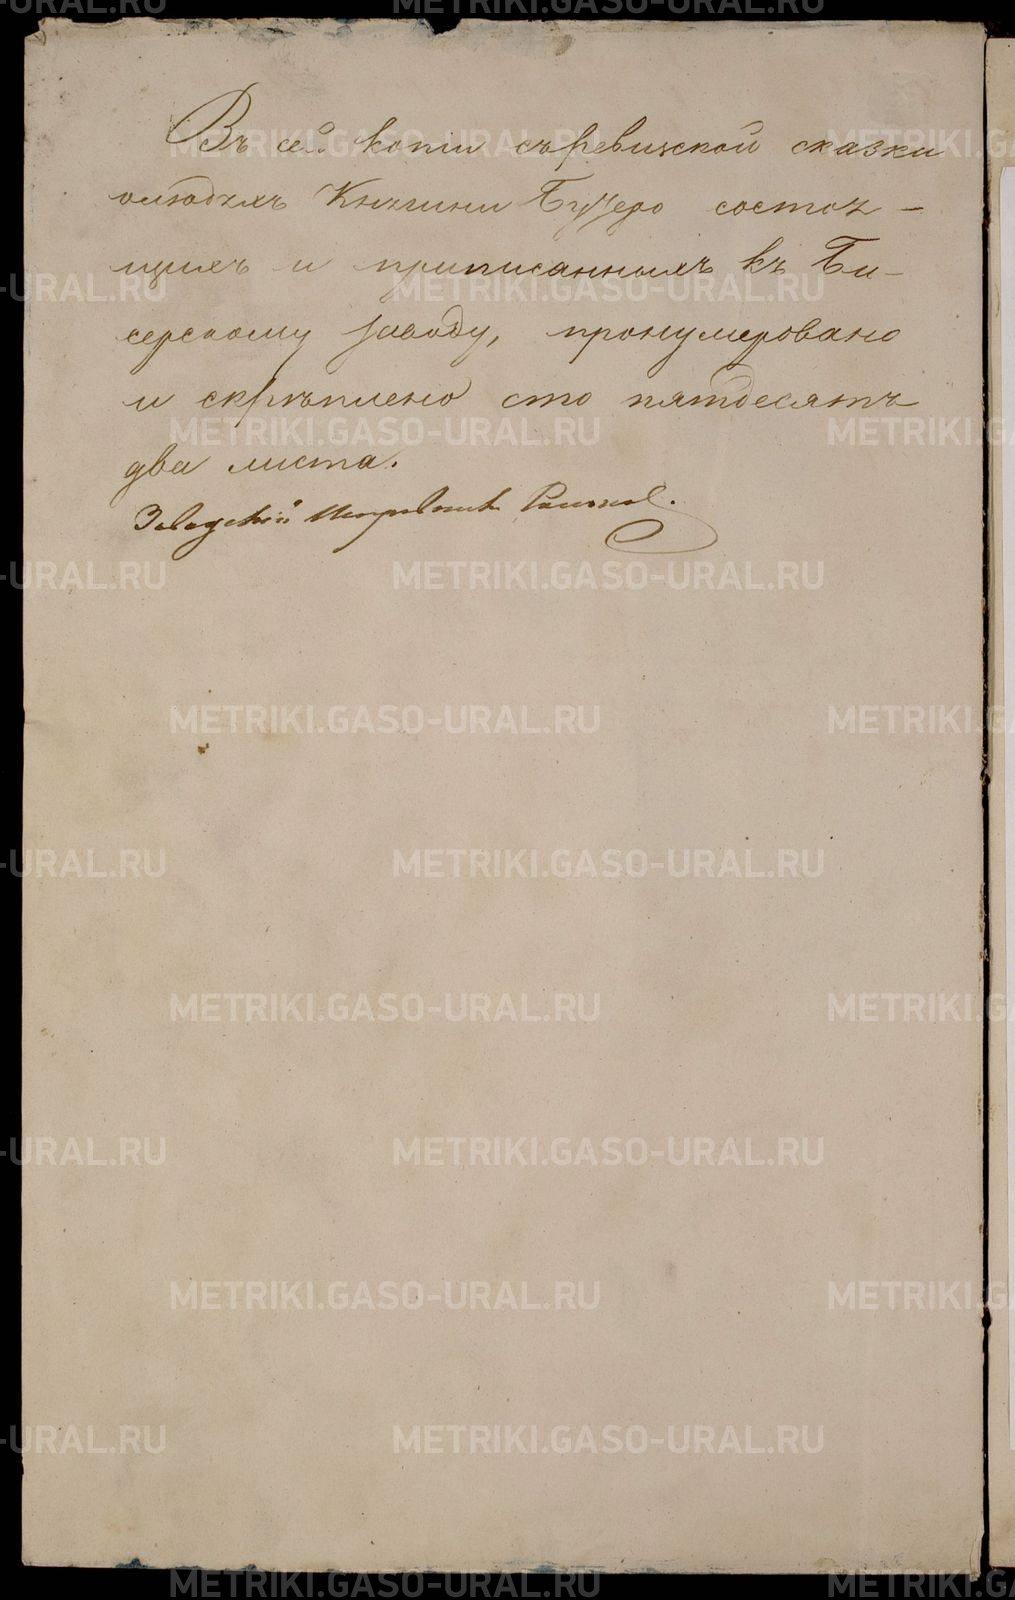 Въ сей копіи съ ревизской сказки
о людяхъ Княгини Бутеро состоя-
щихъ и приписанныхъ къ Би-
серскому заводу, пронумеровано
и скрѣплено сто пятдесятъ
два листа.
Заводскій Исправникъ
METRIKI.GASO-URAL.RU